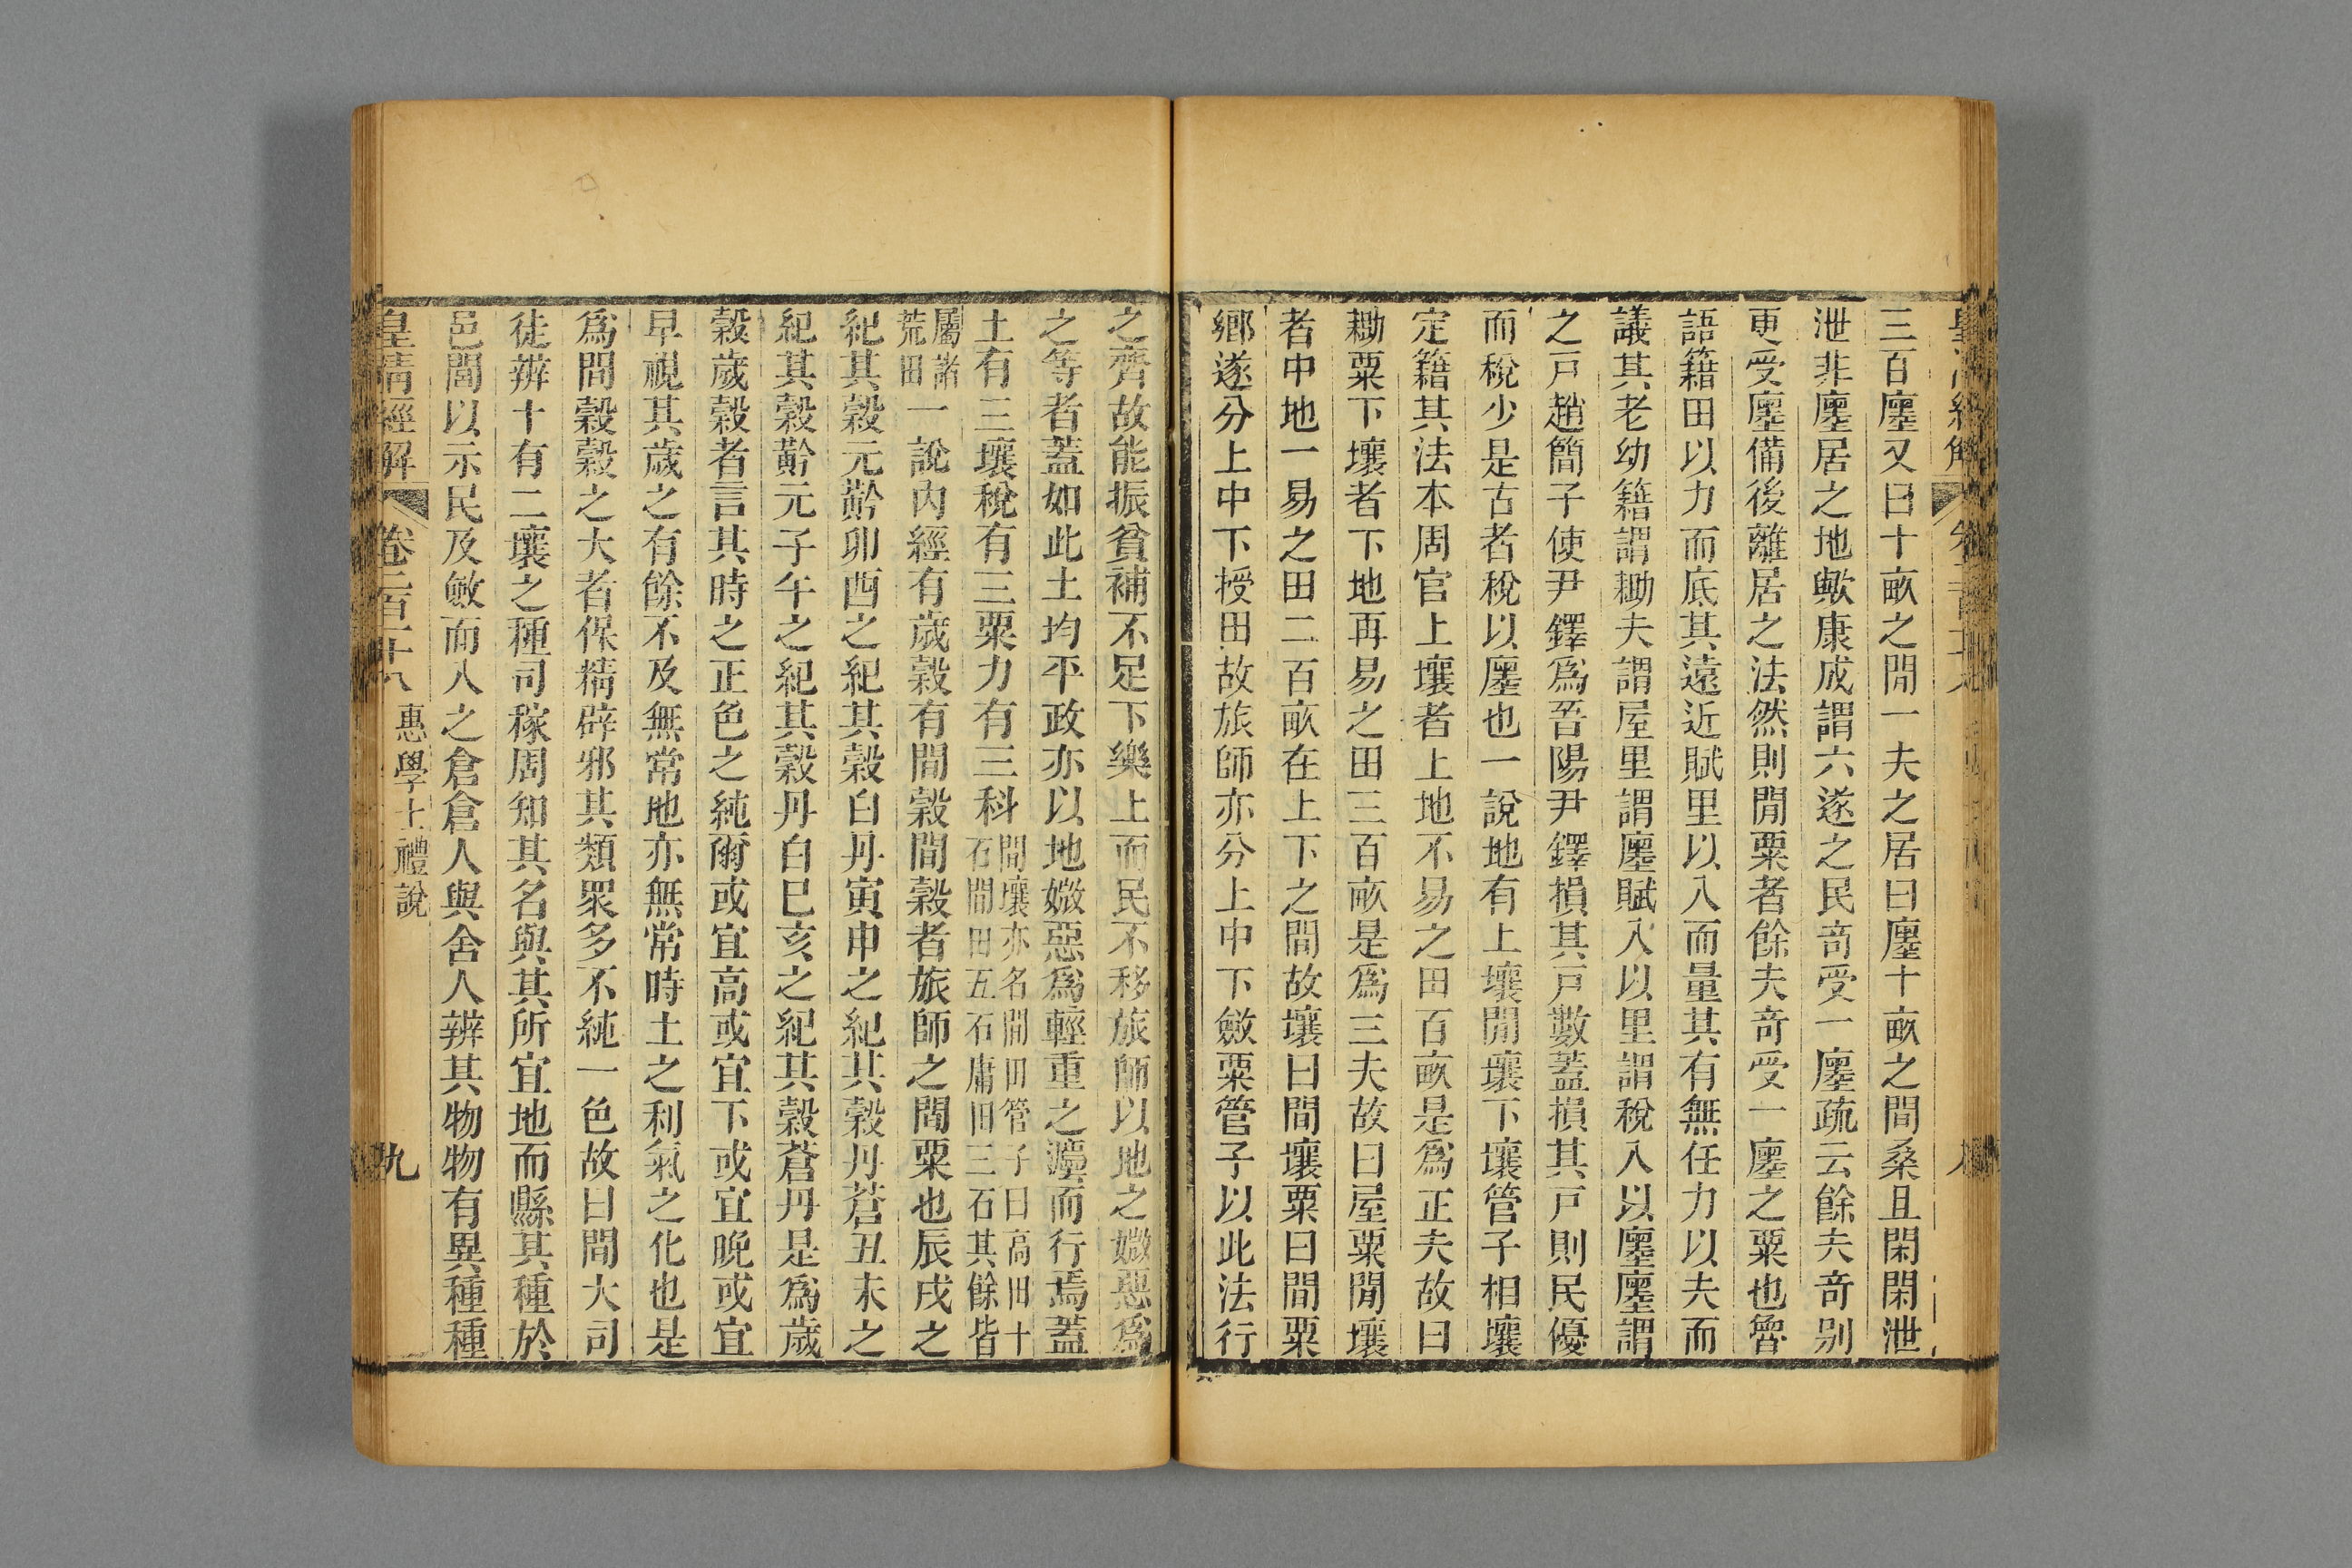 三百廛又曰十畝之閒一夫之居曰廛十畝之閒桑且閑閑泄
泄非廛居之地歟康成謂六遂之民奇受一廛疏云餘夫奇别
更受廛備後離居之法然則閒粟者餘夫奇受一廛之粟也魯
語籍田以力而底其遠近賦里以入而量其有無任力以夫而
議其老幼籍謂耡夫謂屋里謂廛賦入以里謂稅入以廛廛謂
之戸趙簡子使尹鐸爲晉陽尹鐸損其戸數蓋損其戸則民優
而稅少是古者稅以廛也一說地有上壤閒壤下壤管子相壤
定籍其法本周官上壤者上地不易之田百畝是爲正夫故曰
耡粟下壤者下地再易之田三百畝是爲三夫故曰屋粟閒壤
者中地一易之田二百畝在上下之間故壤曰間壤粟曰間粟
鄉遂分上中下授田故旅師亦分上中下斂粟管子以此法行
之齊故能振貧補不足下樂上而民不移旅師以地之媺惡爲
之等者蓋如此土均平政亦以地媺惡爲輕重之灋而行焉蓋
土有三壤稅有三粟力有三科閒壤亦名閒田管子曰高田十石間田五石庸田三石其餘皆
屬諸荒田一說内經有歲穀有間穀間穀者旅師之間粟也辰戌之
紀其穀元黅卯酉之紀其穀白丹寅申之紀其穀丹蒼丑未之
紀其穀黅元子午之紀其穀丹白巳亥之紀其穀蒼丹是爲歲
穀歲穀者言其時之正色之純爾或宜高或宜下或宜晚或宜
早視其歲之有餘不及無常地亦無常時土之利氣之化也是
爲間穀穀之大者保精辟邪其類眾多不純一色故曰間大司
徒辨十有二壤之種司稼周知其名與其所宜地而縣其種於
邑閭以示民及斂而入之倉倉人與舍人辨其物物有異種種
皇清經解 卷二百十八 惠學士禮說 九